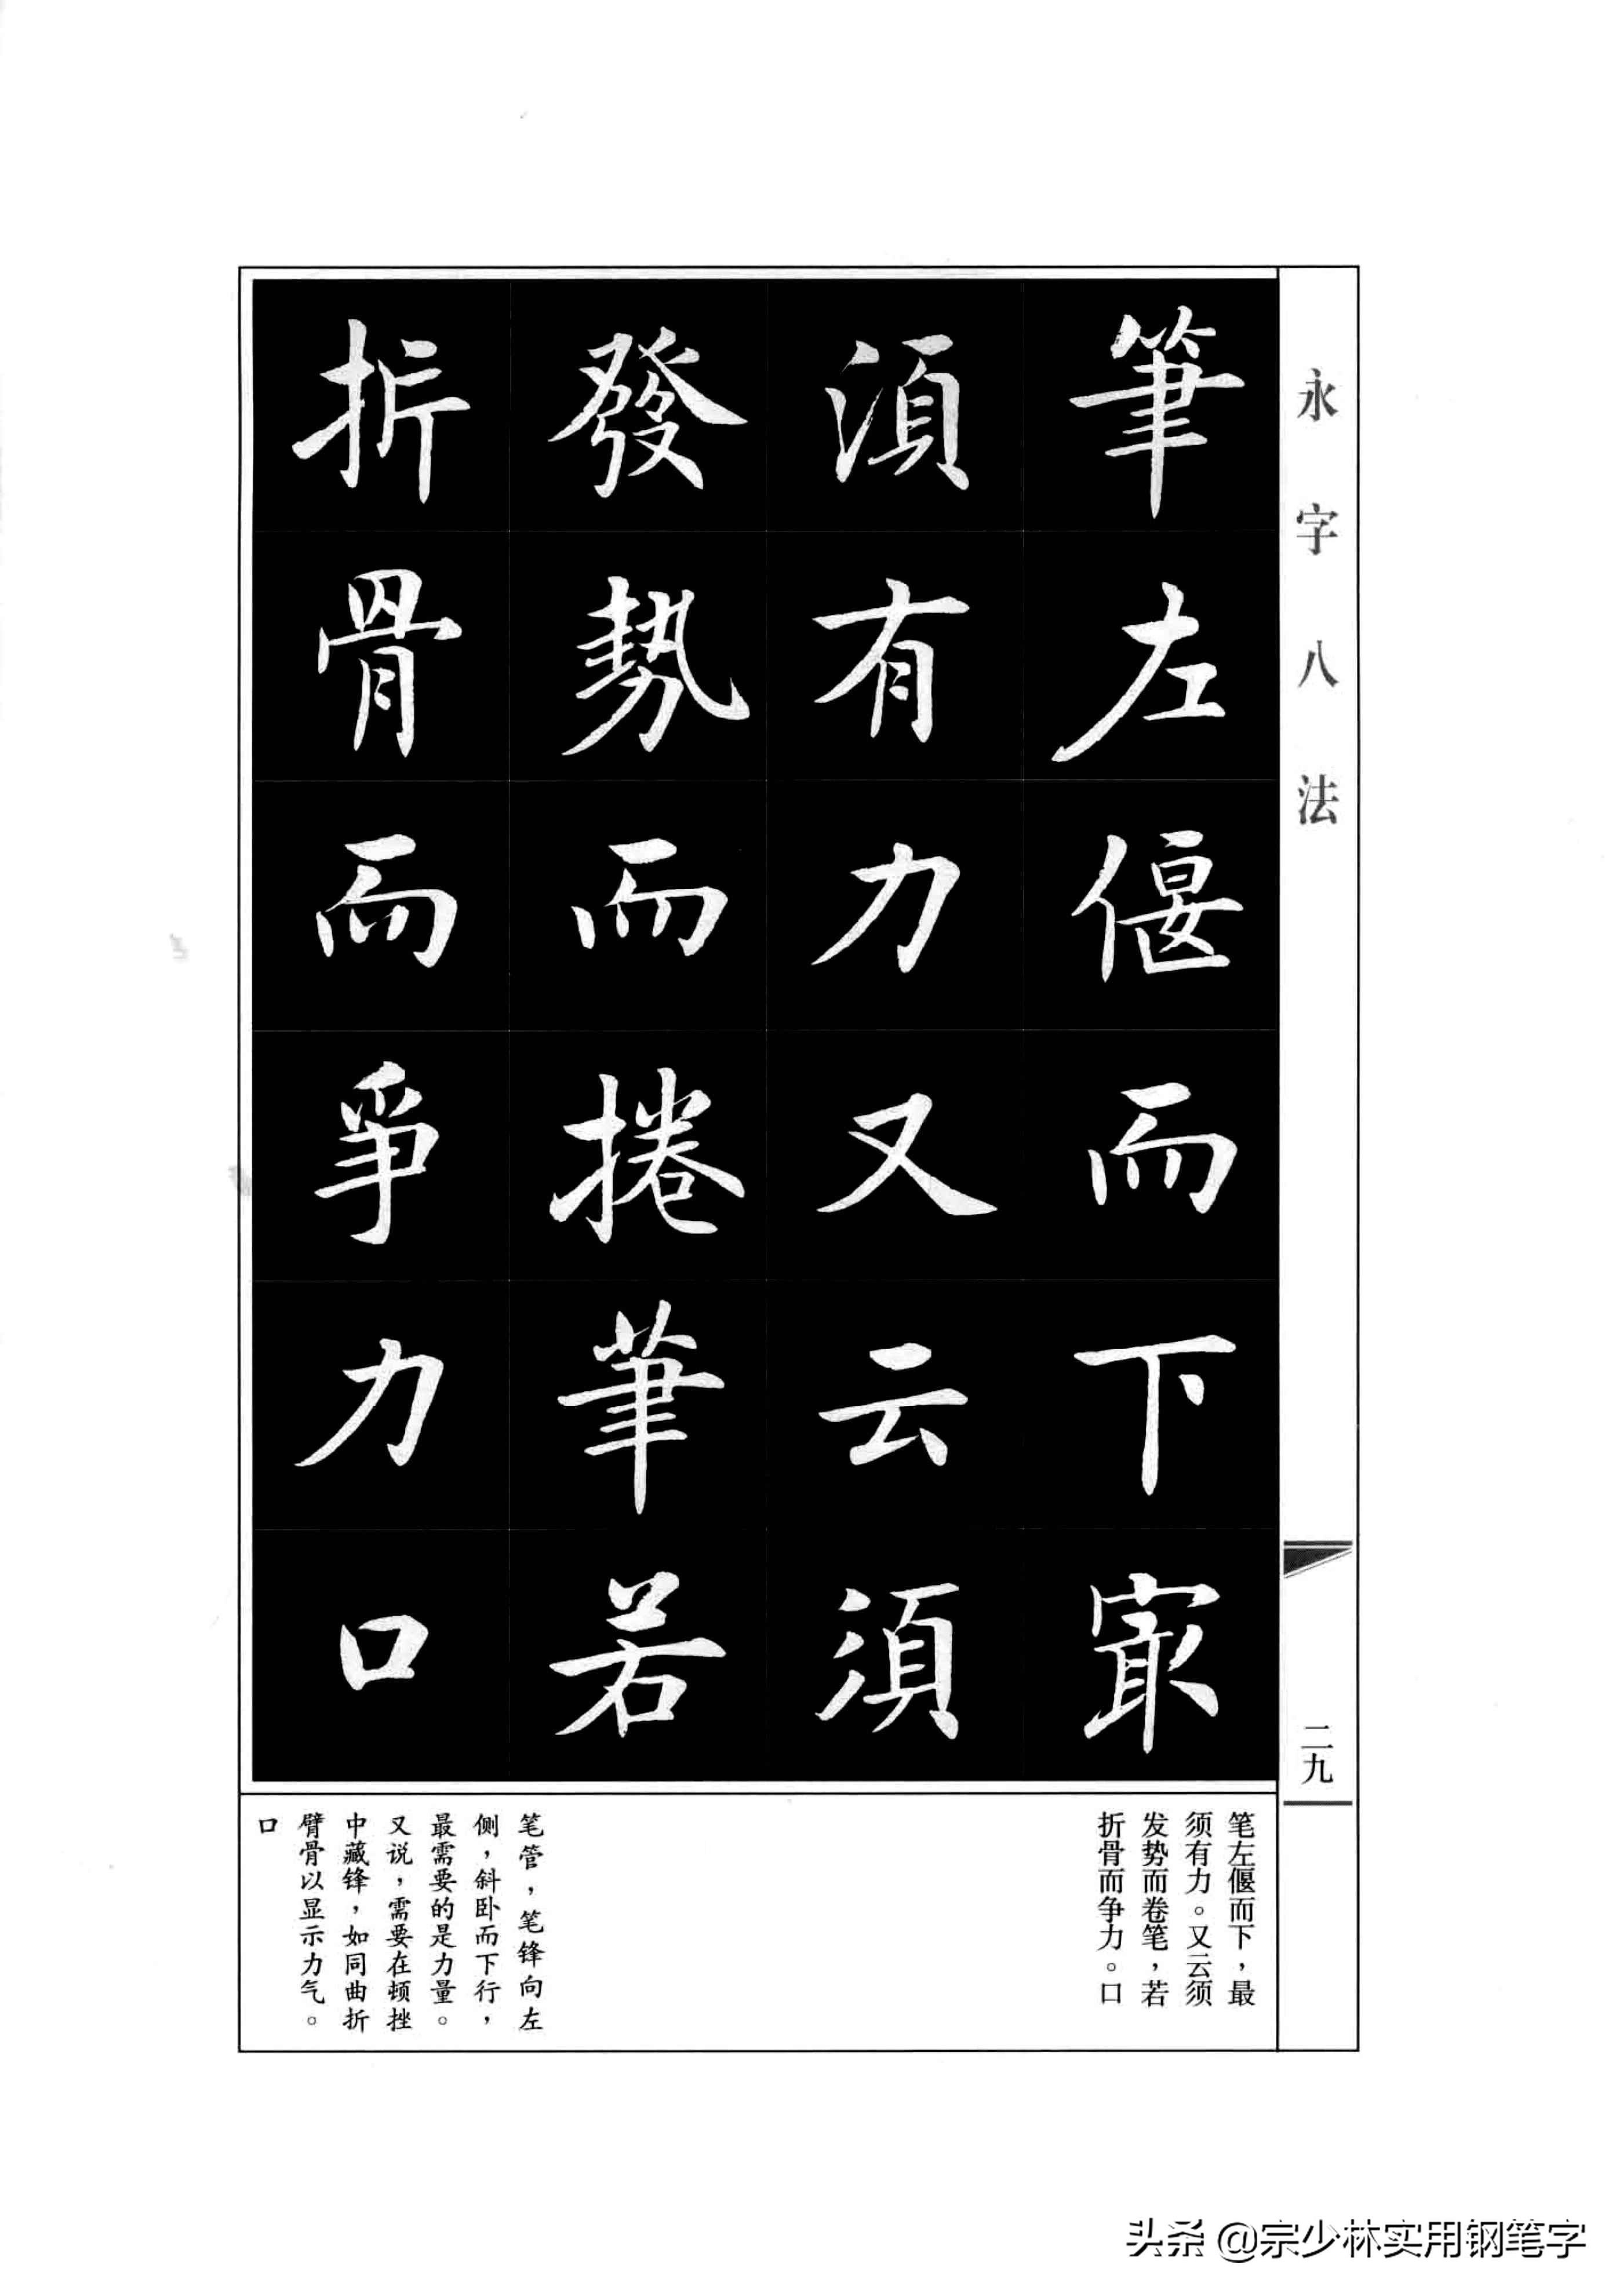 永字八法
二九
筆左偃而下㝡
須有力又云須
發勢而捲筆若
折骨而爭力口
笔左偃而下，最
须有力。又云须
发势而卷笔，若
折骨而争力。口
笔管，笔锋向左
侧，斜卧而下行，
最需要的是力量。
又说，需要在顿挫
中藏锋，如同曲折
臂骨以显示力气。
口
头条 @宗少林实用钢笔字